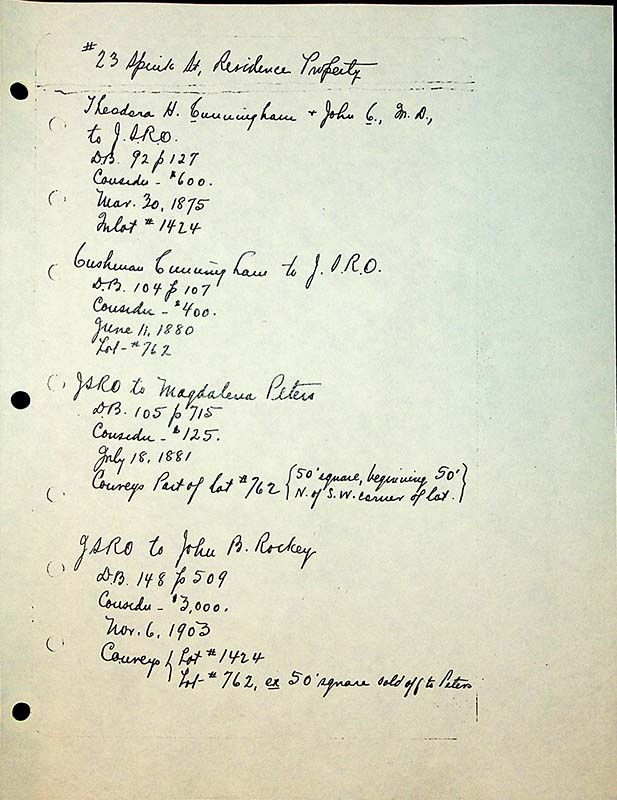 #23 Spink St, Residence Property
Theodora H. Cunningham + John C., M.D.,
to J.S.R.O.
D.B. 92 p 127
Consider - $600.
Mar. 30, 1875
Inlot #1424
Cushman Cunningham to J.S.R.O.
D.B. 104 p 107
Consider - $400.
June 11, 1880
Lot - #762
JSRO to Magdalena Peters
D.B. 105 p 715
Consider - $125.
July 18, 1881
Conveys Part of Lot #762 {50' square, beginning 50'
N. of S.W. corner of lot.}
JSRO to John B. Rockey
D.B. 148 p 509
Consider - $3,000.
Nov. 6, 1903
Conveys { Lot #1424
Lot - #762, ex 50' square sold off to Peters